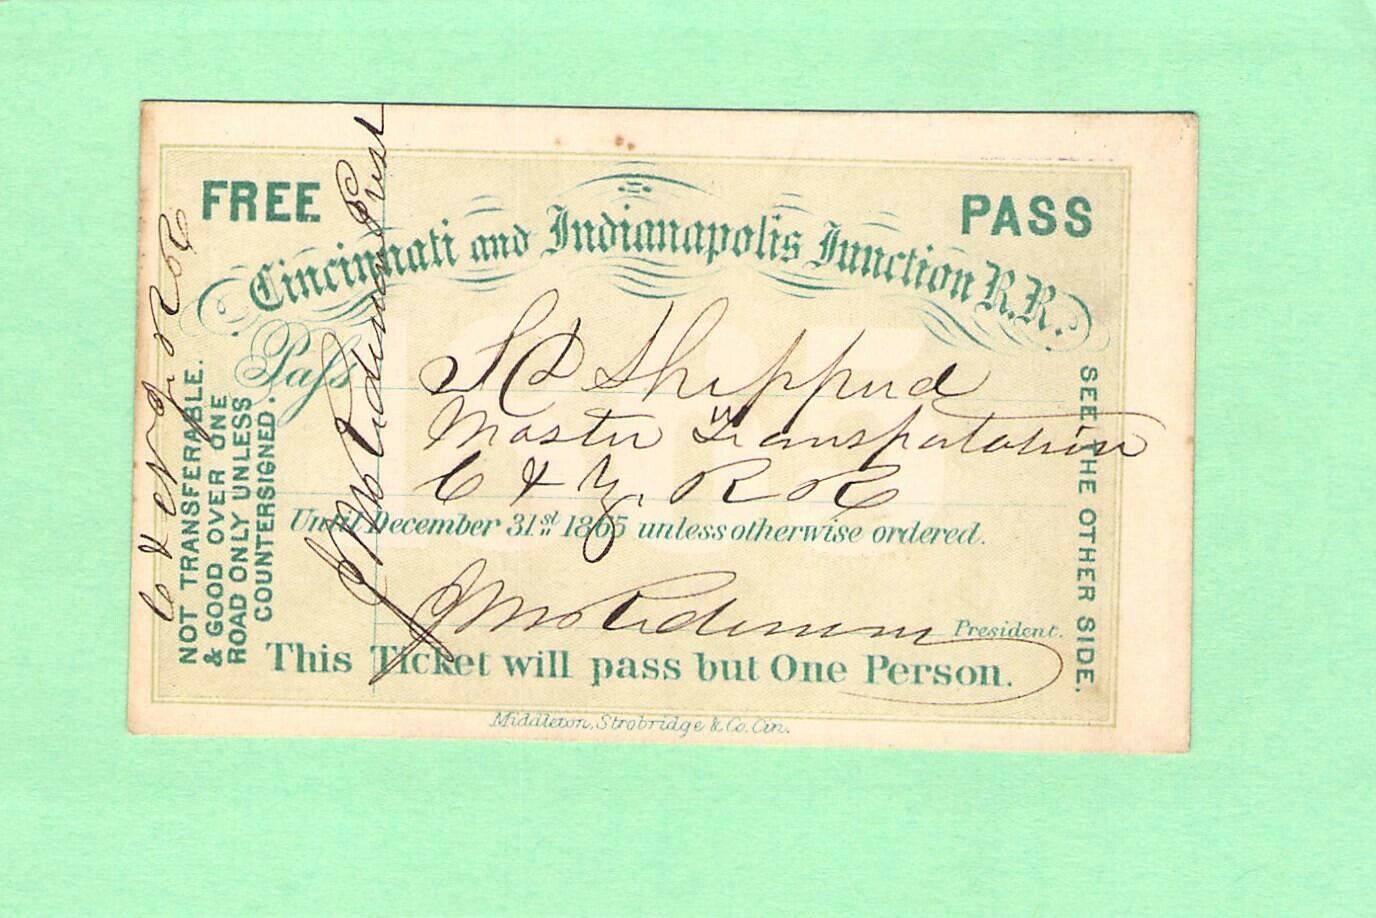 FREE PASS
Cincinnati and Indianapolis Junction R.R.
Pass S Sheppard
Master Transportation
C & Z. R R
Until December 31st 1865 unless otherwise ordered.
President.
This Ticket will pass but One Person.
Middleton, Strobridge & Co. Cin.
NOT TRANSFERABLE.
& GOOD OVER ONE
ROAD ONLY UNLESS
COUNTERSIGNED.
SEE THE OTHER SIDE.
Prest